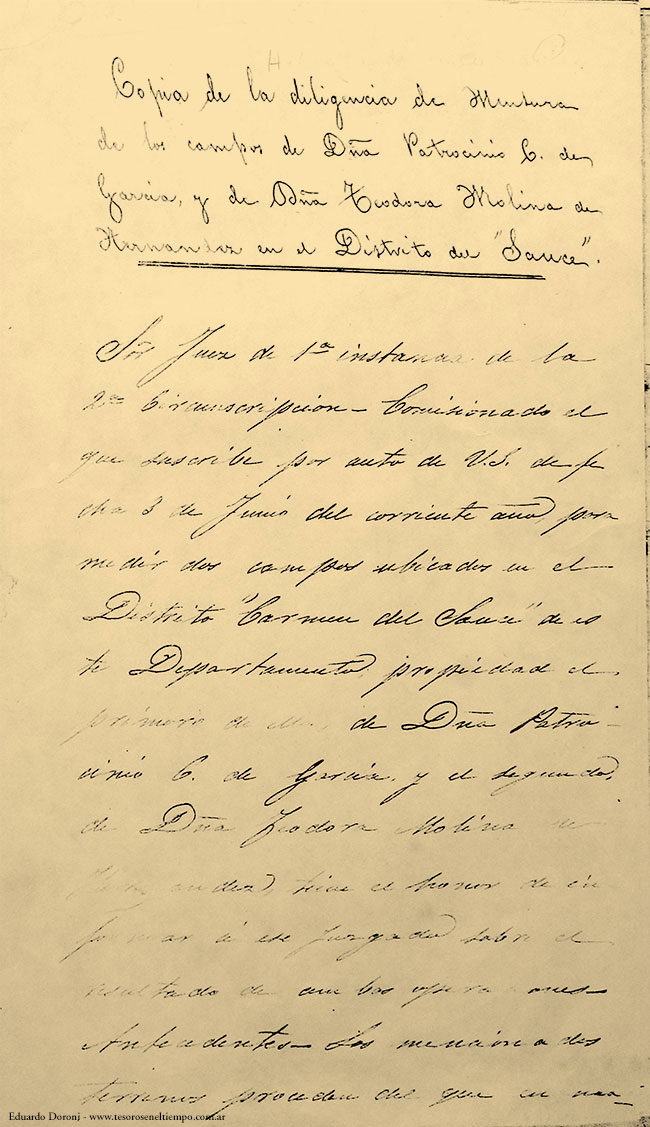 Copia de la diligencia de Mensura
de los campos de Dña Patrocinio C. de
García, y de Dña Teodora Molina de
Hernandez en el Distrito del "Sauce".
Sōr Juez de 1ª instancia de la
2ª Circunscripción – Comisionado el
que suscribe por auto de V.S. de fe
cha 3 de Junio del corriente año, para
medir dos campos ubicados en el
Distrito "Carmen del Sauce" de es
te Departamento, propiedad el
primero de ellos, de Dña Patro-
cinio C. de García, y el segundo,
de Dña Teodora Molina de
Hernandez, tiene el honor de in
formar á ese Juzgado sobre el
resultado de ambas operaciones
Antecedentes – Los mencionados
terrenos proceden del que en
Eduardo Doronj - www.tesoroseneltiempo.com.ar